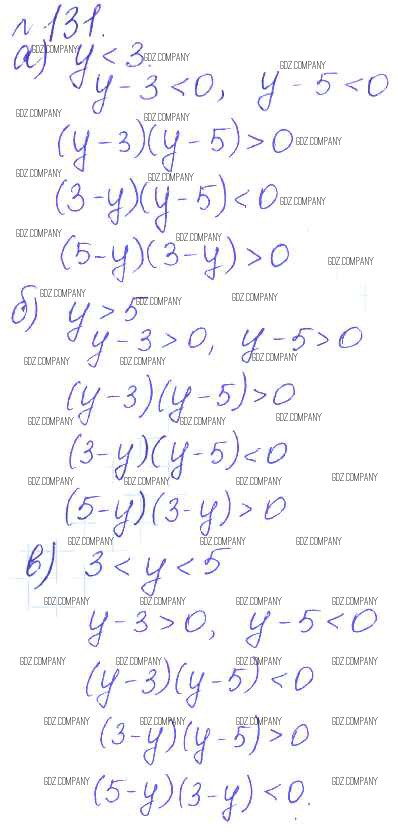 №131.
а) y < 3.
y - 3 < 0, y - 5 < 0
(y - 3)(y - 5) > 0
(3 - y)(y - 5) < 0
(5 - y)(3 - y) > 0
б) y > 5
y - 3 > 0, y - 5 > 0
(y - 3)(y - 5) > 0
(3 - y)(y - 5) < 0
(5 - y)(3 - y) > 0
в) 3 < y < 5
y - 3 > 0, y - 5 < 0
(y - 3)(y - 5) < 0
(3 - y)(y - 5) > 0
(5 - y)(3 - y) < 0.
GDZ.COMPANY